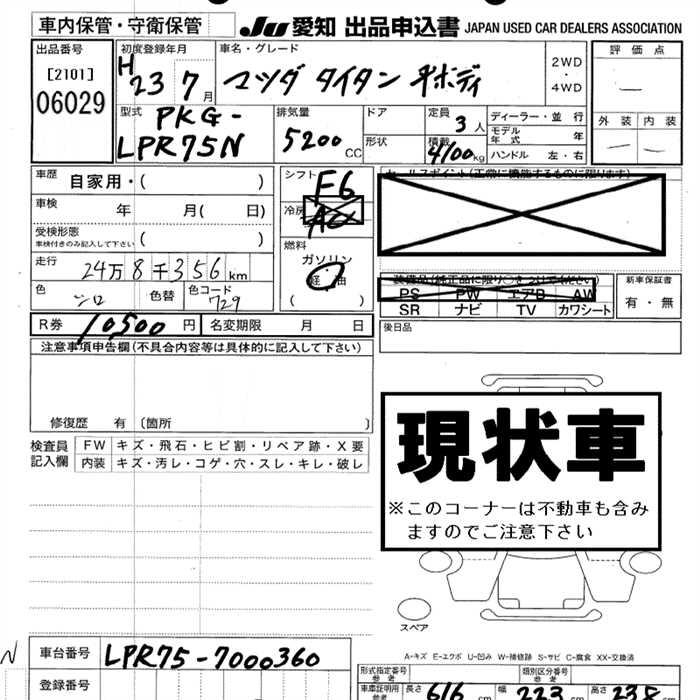 車内保管・守衛保管
JU 愛知 出品申込書 JAPAN USED CAR DEALERS ASSOCIATION
出品番号
[2101]
06029
初度登録年月
H23 7月
車名・グレード
マツダ タイタン 平ボディ
2WD
・
4WD
評価点
外装 内装
型式
PKG-
LPR75N
排気量
5200cc
ドア
形状
定員
3人
積載
4100kg
ディーラー・並行
モデル年式 年
ハンドル 左・右
車歴 自家用・( )
車検 年 月( 日)
受検形態
車検付きのみ記入して下さい ( )
走行
24万8千356km
色 シロ 色替
色コード 729
シフト F6
冷房 AC
燃料
ガソリン
軽油
( )
セールスポイント(正常に機能するものに限ります)
装備品(純正品に限り○をつけてください)
PS PW エアB AW
SR ナビ TV カワシート
新車保証書
有・無
R券 10,500円 名変期限 月 日
後日品
注意事項申告欄(不具合内容等は具体的に記入して下さい)
修復歴 有〔箇所 〕
検査員記入欄
FW キズ・飛石・ヒビ割・リペア跡・X要
内装 キズ・汚レ・コゲ・穴・スレ・キレ・破レ
現状車
※このコーナーは不動車も含み
ますのでご注意下さい
スペア
A-キズ E-エクボ U-凹み W-補修跡 S-サビ C-腐食 XX-交換済
N
車台番号 LPR75-7000360
登録番号
形式指定番号 参考
類別区分番号 参考
車庫証明用 参考 長さ 616cm 幅 223cm 高さ 238cm